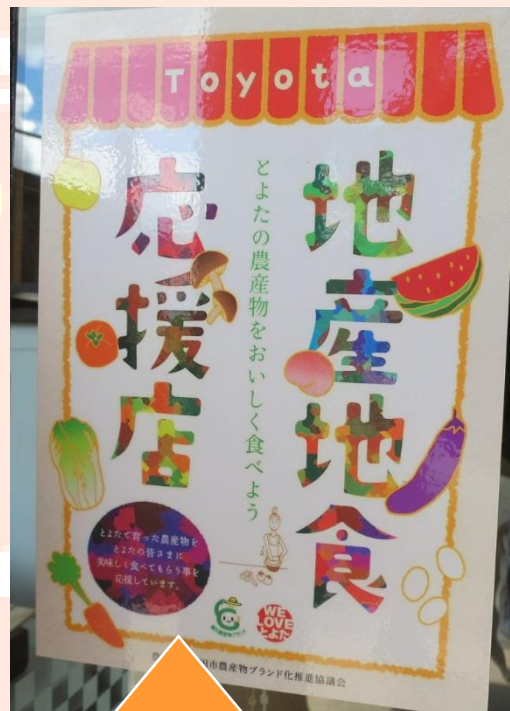 Toyota
地産地食
とよたの農産物をおいしく食べよう
応援店
とよたで育った農産物を
とよたの皆さまに
美味しく食べてもらう事を
応援しています。
WE
LOVE
とよた
市農産物ブランド化推進協議会